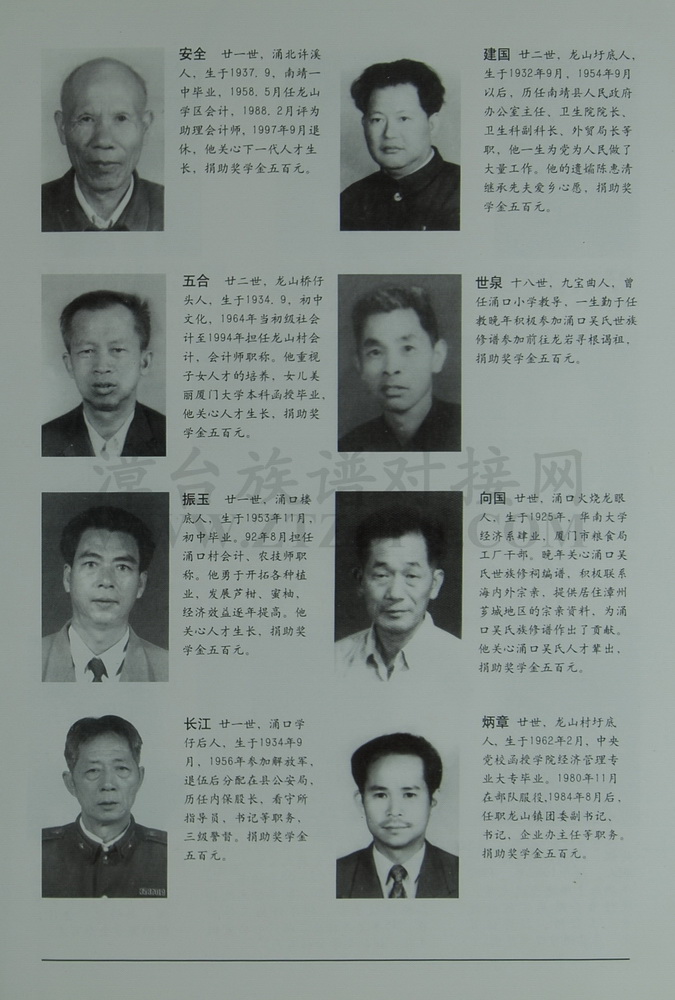 安全 廿一世，涌北许溪
人，生于1937.9，南靖一
中毕业，1958.5月任龙山
学区会计，1988.2月评为
助理会计师，1997年9月退
休，他关心下一代人才生
长，捐助奖学金五百元。
建国 廿二世，龙山圩底人，
生于1932年9月，1954年9月
以后，历任南靖县人民政府
办公室主任、卫生院院长、
卫生科副科长、外贸局长等
职，他一生为党为人民做了
大量工作。他的遗孀陈惠清
继承先夫爱乡心愿，捐助奖
学金五百元。
五合 廿二世，龙山桥仔
头人，生于1934.9，初中
文化，1964年当初级社会
计至1994年担任龙山村会
计，会计师职称。他重视
子女人才的培养，女儿美
丽厦门大学本科函授毕业，
他关心人才生长，捐助奖
学金五百元。
世泉 十八世，九宝曲人，曾
任涌口小学教导，一生勤于任
教晚年积极参加涌口吴氏世族
修谱参加前往龙岩寻根谒祖，
捐助奖学金五百元。
漳台族谱对接网
振玉 廿一世，涌口楼
底人，生于1953年11月，
初中毕业。92年8月担任
涌口村会计、农技师职
称。他勇于开拓各种植
业，发展芦柑、蜜柚，
经济效益逐年提高。他
关心人才生长，捐助奖
学金五百元。
向国 廿世，涌口火烧龙眼
人，生于1925年，华南大学
经济系肄业，厦门市粮食局
工厂干部。晚年关心涌口吴
氏世族修祠编谱，积极联系
海内外宗亲，提供居住漳州
芗城地区的宗亲资料，为涌
口吴氏族修谱作出了贡献。
他关心涌口吴氏人才辈出，
捐助奖学金五百元。
长江 廿一世，涌口学
仔后人，生于1934年9
月，1956年参加解放军，
退伍后分配在县公安局，
历任内保股长，看守所
指导员，书记等职务，
三级警督。捐助奖学金
五百元。
炳章 廿世，龙山村圩底
人，生于1962年2月，中央
党校函授学院经济管理专
业大专毕业。1980年11月
在部队服役，1984年8月后，
任职龙山镇团委副书记、
书记，企业办主任等职务。
捐助奖学金五百元。